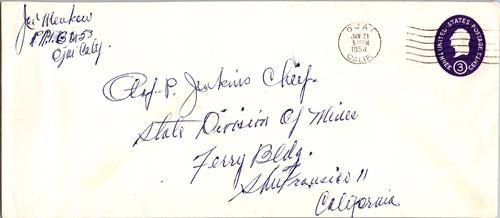 Joe Menkow
Ojai Calif
OJAI
JAN 21
5 PM
1954
CALIF.
UNITED STATES POSTAGE
THREE 3 CENTS
Olaf P. Jenkins Chief.
State Division Of Mines
Ferry Bldg.
San Fransico 11
California